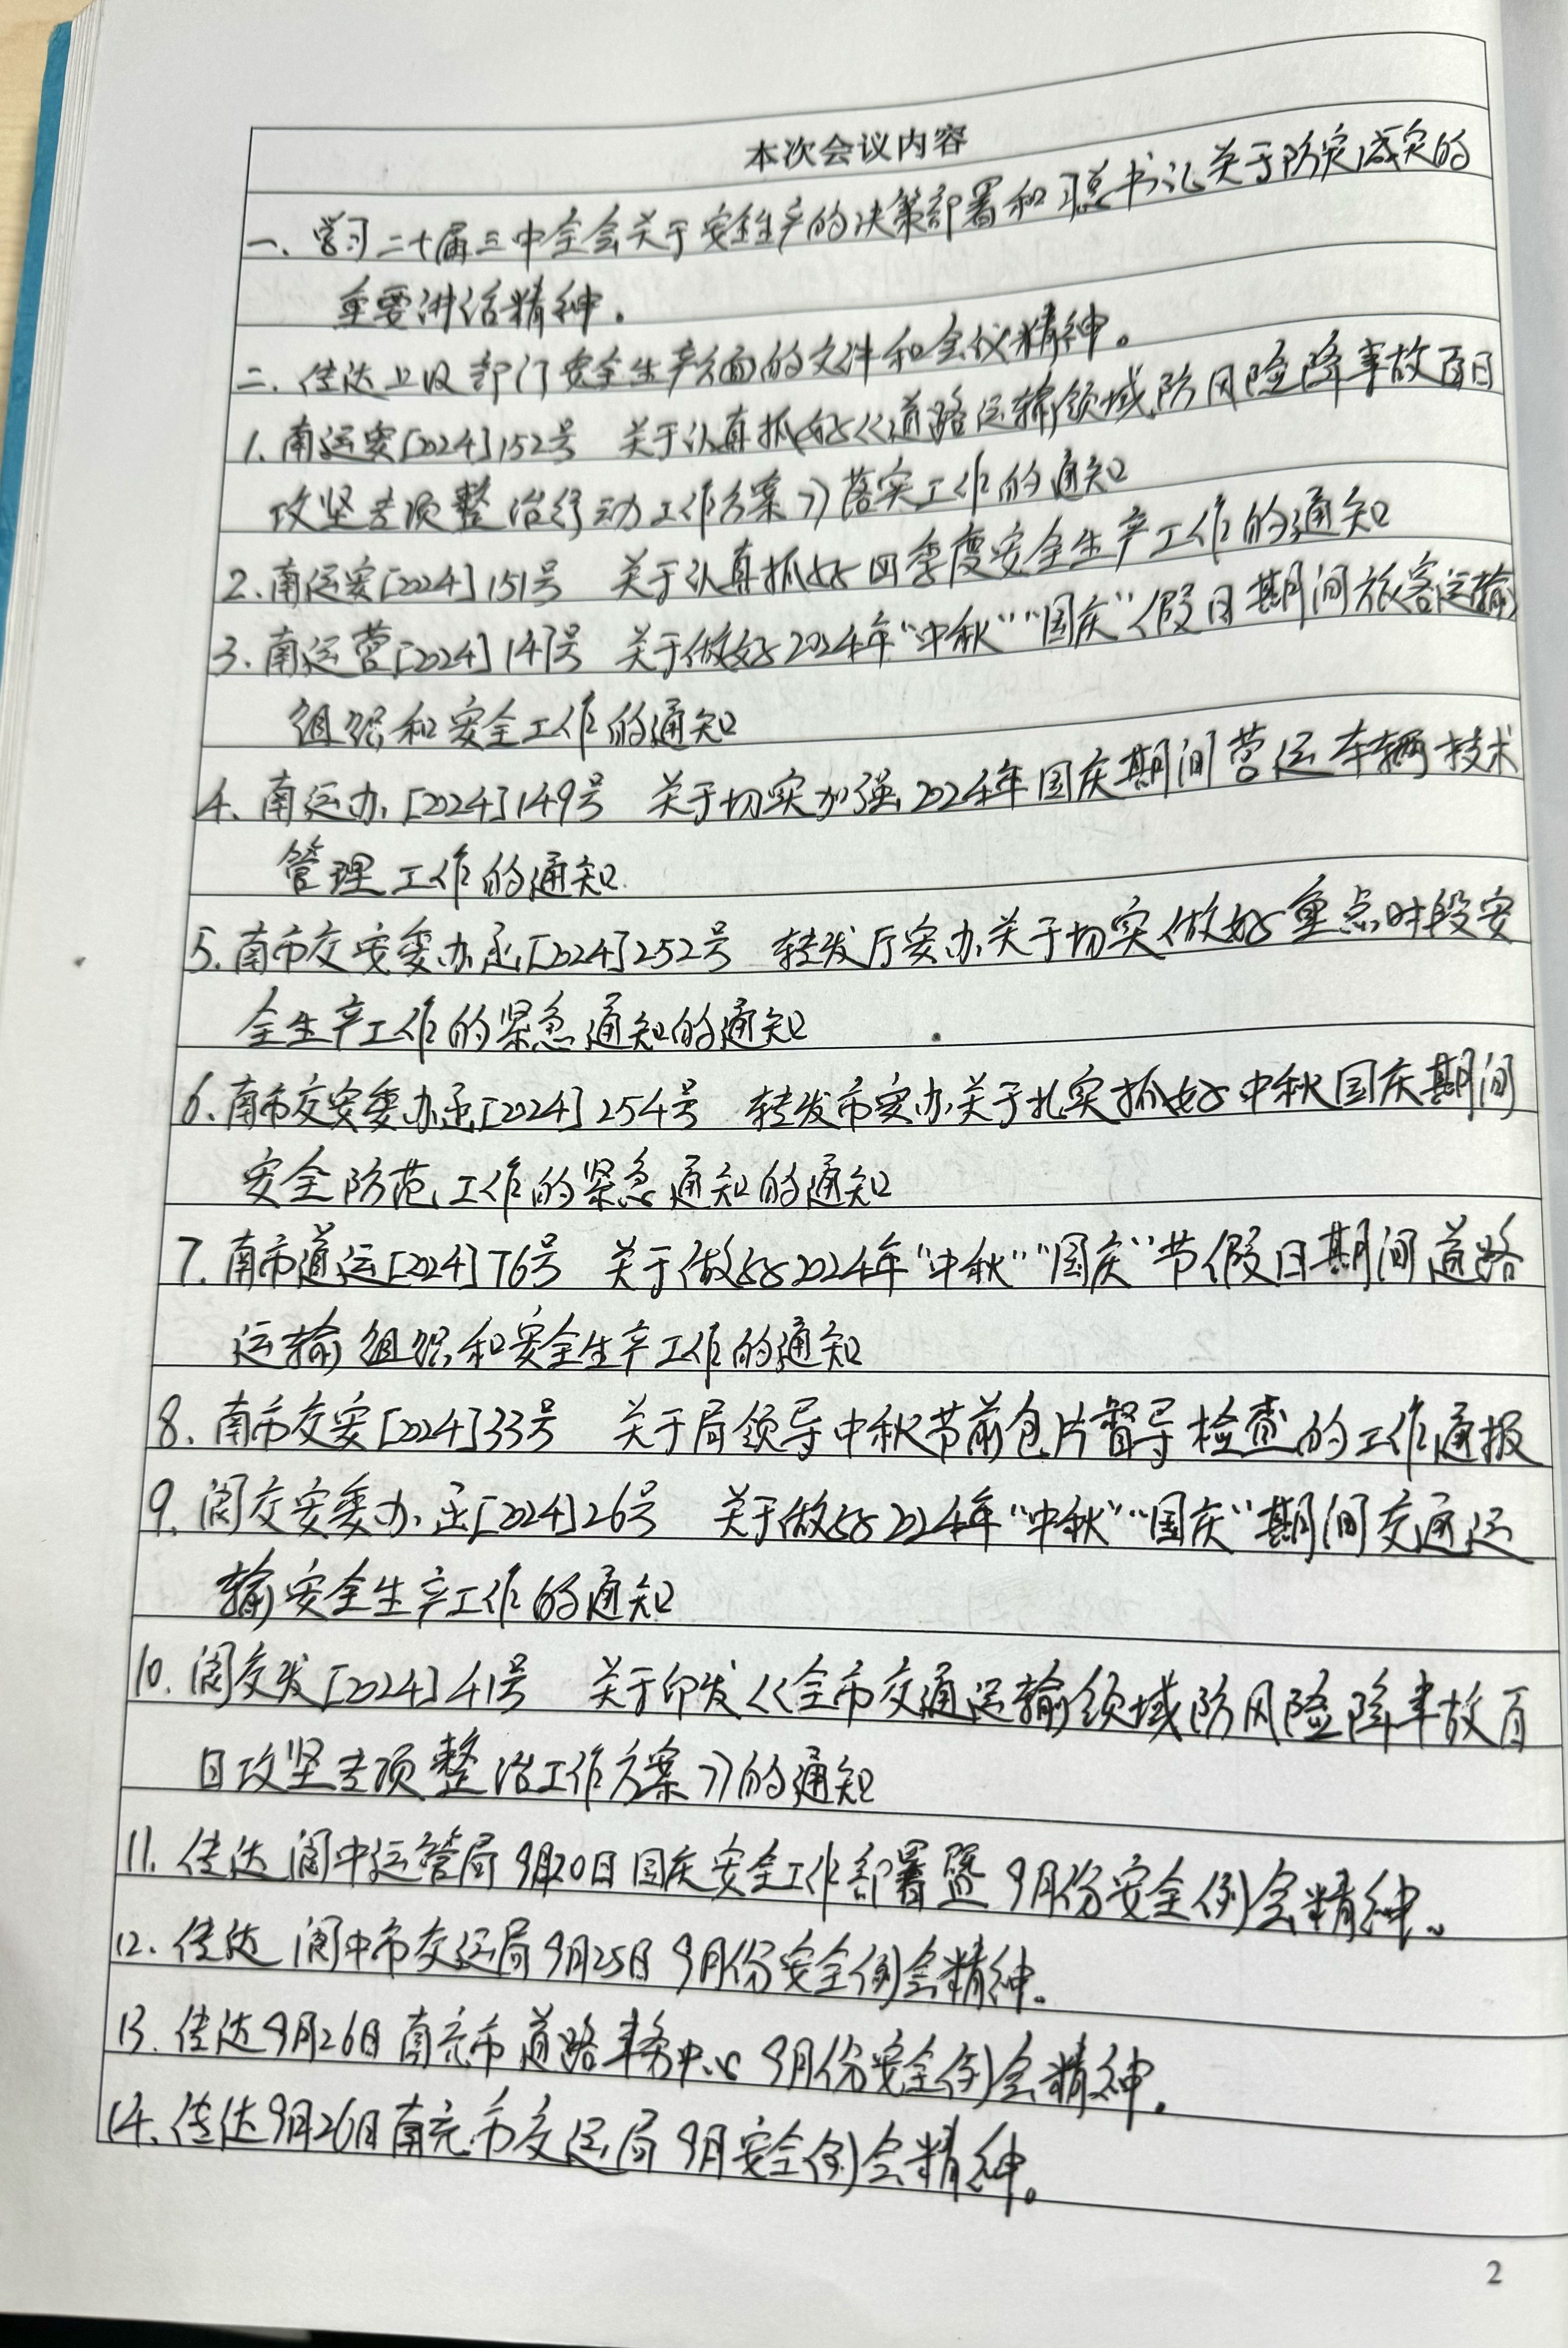 本次会议内容
一、学习二十届三中全会关于安全生产的决策部署和习总书记关于防灾减灾的
重要讲话精神。
二、传达上级部门安全生产方面的文件和会议精神。
1.南运安[2024]152号 关于认真抓好《道路运输领域防风险降事故百日
攻坚专项整治行动工作方案》落实工作的通知
2.南运安[2024]151号 关于认真抓好四季度安全生产工作的通知
3.南运营[2024]147号 关于做好2024年“中秋”“国庆”假日期间旅客运输
组织和安全工作的通知
4.南运办[2024]149号 关于切实加强2024年国庆期间营运车辆技术
管理工作的通知
5.南市交安委办函[2024]252号 转发厅安办关于切实做好重点时段安
全生产工作的紧急通知的通知
6.南市交安委办函[2024]254号 转发市安办关于扎实抓好中秋国庆期间
安全防范工作的紧急通知的通知
7.南市道运[2024]76号 关于做好2024年“中秋”“国庆”节假日期间道路
运输组织和安全生产工作的通知
8.南市交安[2024]33号 关于局领导中秋节前包片督导检查的工作通报
9.阆交安委办函[2024]26号 关于做好2024年“中秋”“国庆”期间交通运
输安全生产工作的通知
10.阆交发[2024]41号 关于印发《全市交通运输领域防风险降事故百
日攻坚专项整治工作方案》的通知
11.传达阆中运管局9月20日国庆安全工作部署暨9月份安全例会精神。
12.传达阆中市交运局9月25日9月份安全例会精神。
13.传达9月26日南充市道路事务中心9月份安全例会精神。
14.传达9月26日南充市交运局9月安全例会精神。
2